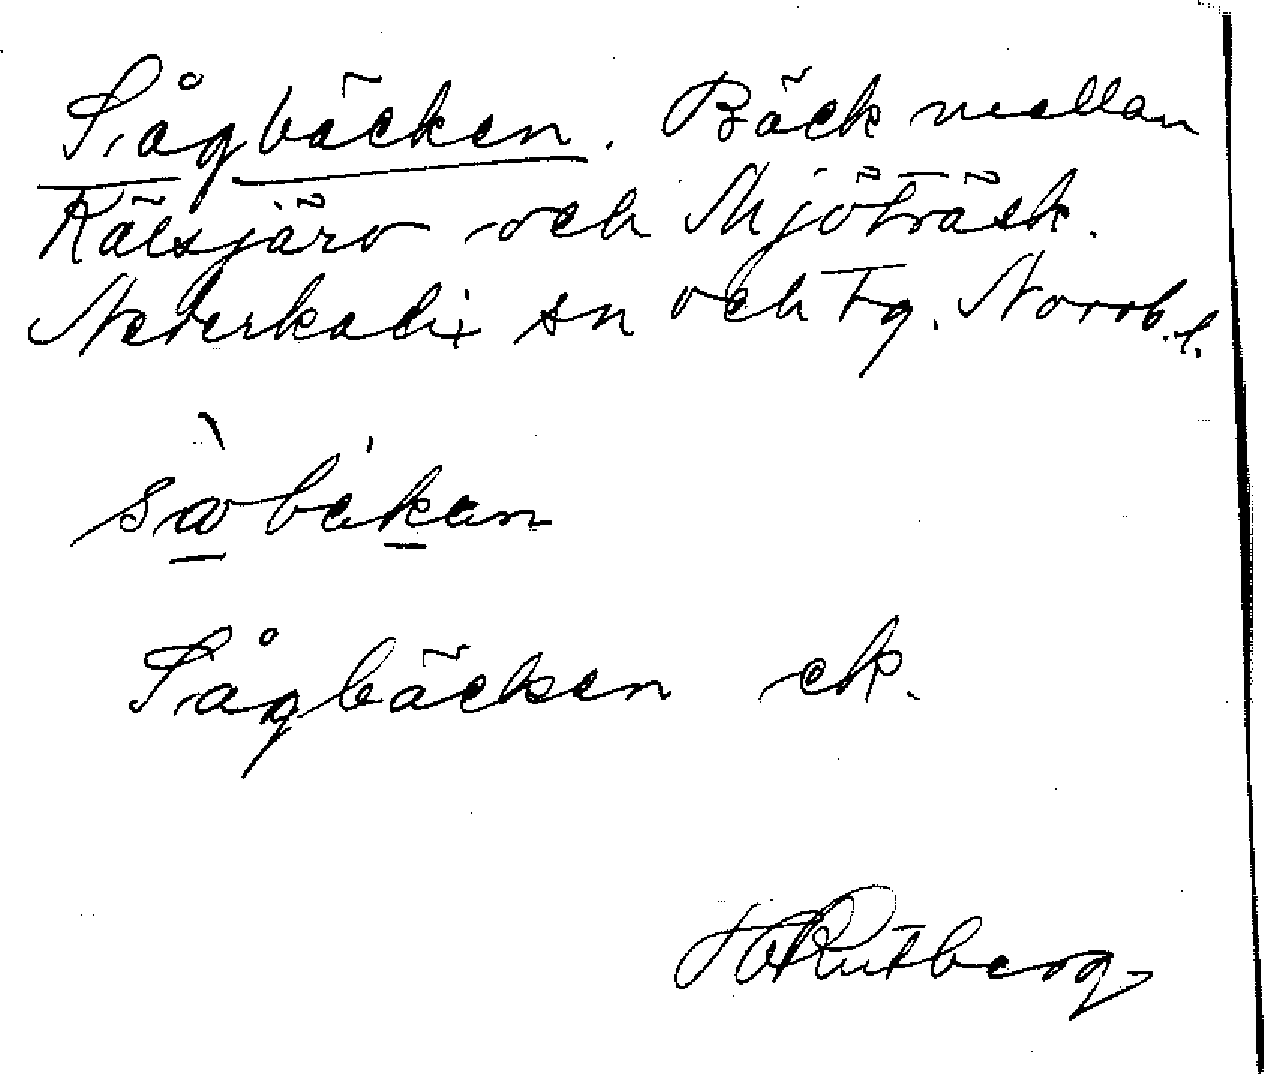 Sågbäcken. Bäck mellan
Kälsjärv och Mjöträsk.
Nederkalix sn och tg. Norrb. l.
Sågbäcken ek.
Rutberg